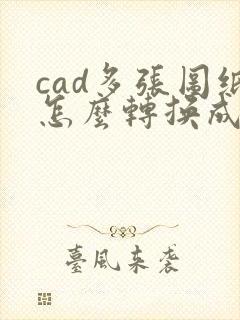 cad多張圖紙
怎麼轉換成
臺風來袭